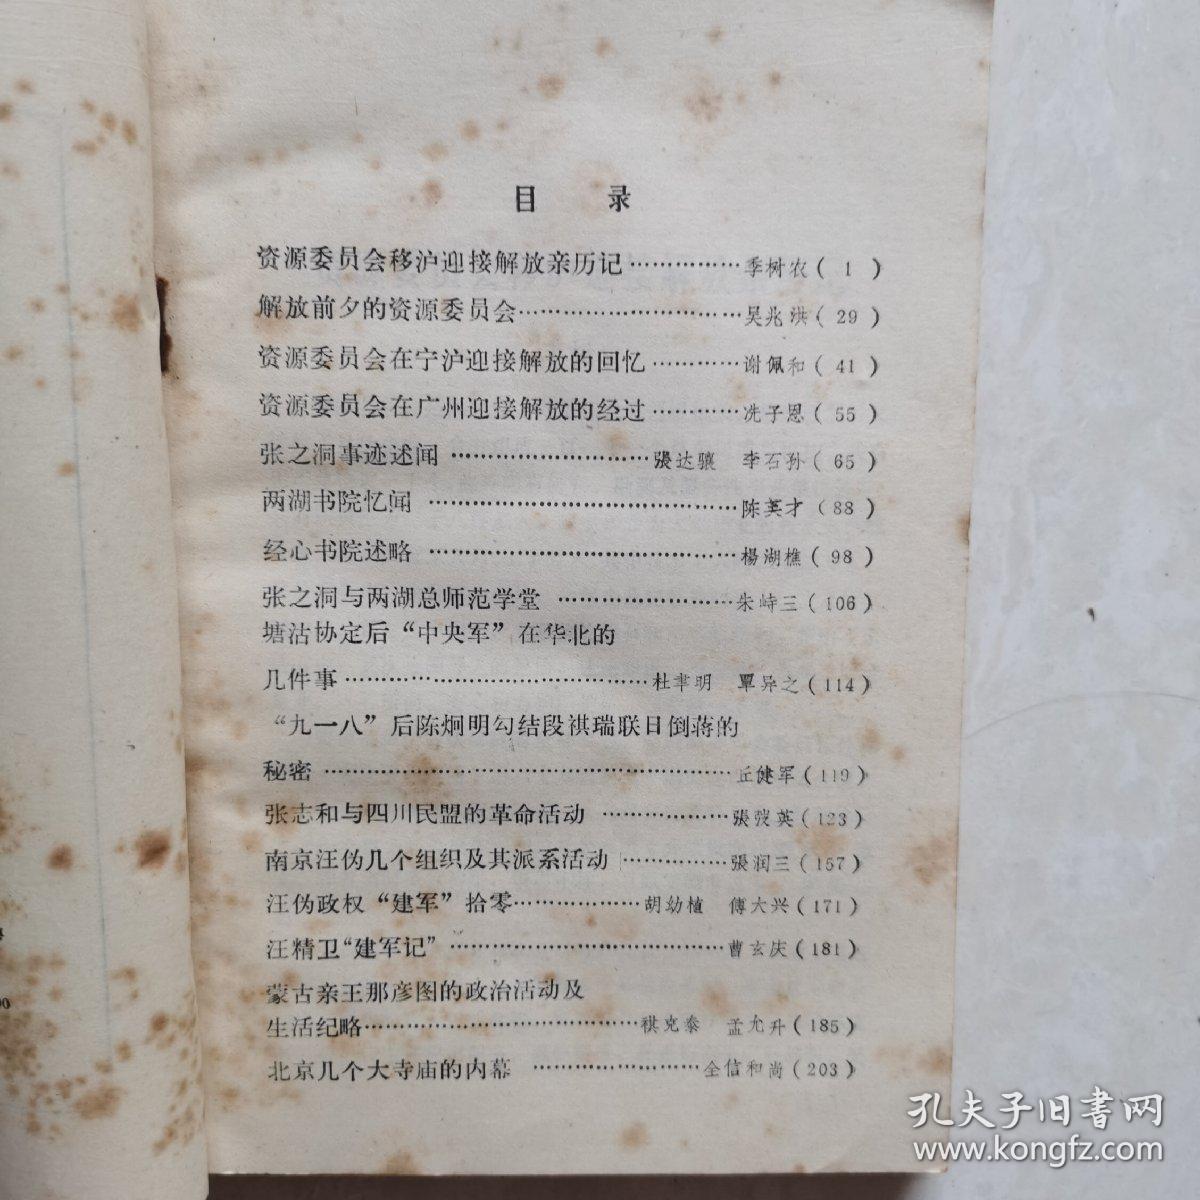 目 录
资源委员会移沪迎接解放亲历记……………季树农( 1 )
解放前夕的资源委员会…………………………吴兆洪( 29 )
资源委员会在宁沪迎接解放的回忆…………谢佩和( 41 )
资源委员会在广州迎接解放的经过…………冼子恩( 55 )
张之洞事迹述闻………………………張达骧 李石孙( 65 )
两湖书院忆闻……………………………………陈英才( 88 )
经心书院述略……………………………………楊湖樵( 98 )
张之洞与两湖总师范学堂……………………朱峙三(106)
塘沽协定后“中央军”在华北的
几件事……………………………………杜聿明 覃异之(114)
“九一八”后陈炯明勾结段祺瑞联日倒蒋的
秘密…………………………………………………丘健军(119)
张志和与四川民盟的革命活动………………張弢英(123)
南京汪伪几个组织及其派系活动……………張润三(157)
汪伪政权“建军”拾零………………胡幼植 傅大兴(171)
汪精卫“建军记”…………………………………曹玄庆(181)
蒙古亲王那彦图的政治活动及
生活纪略…………………………………祺克泰 孟允升(185)
北京几个大寺庙的内幕……………………全信和尚(203)
孔夫子旧书网
www.kongfz.com